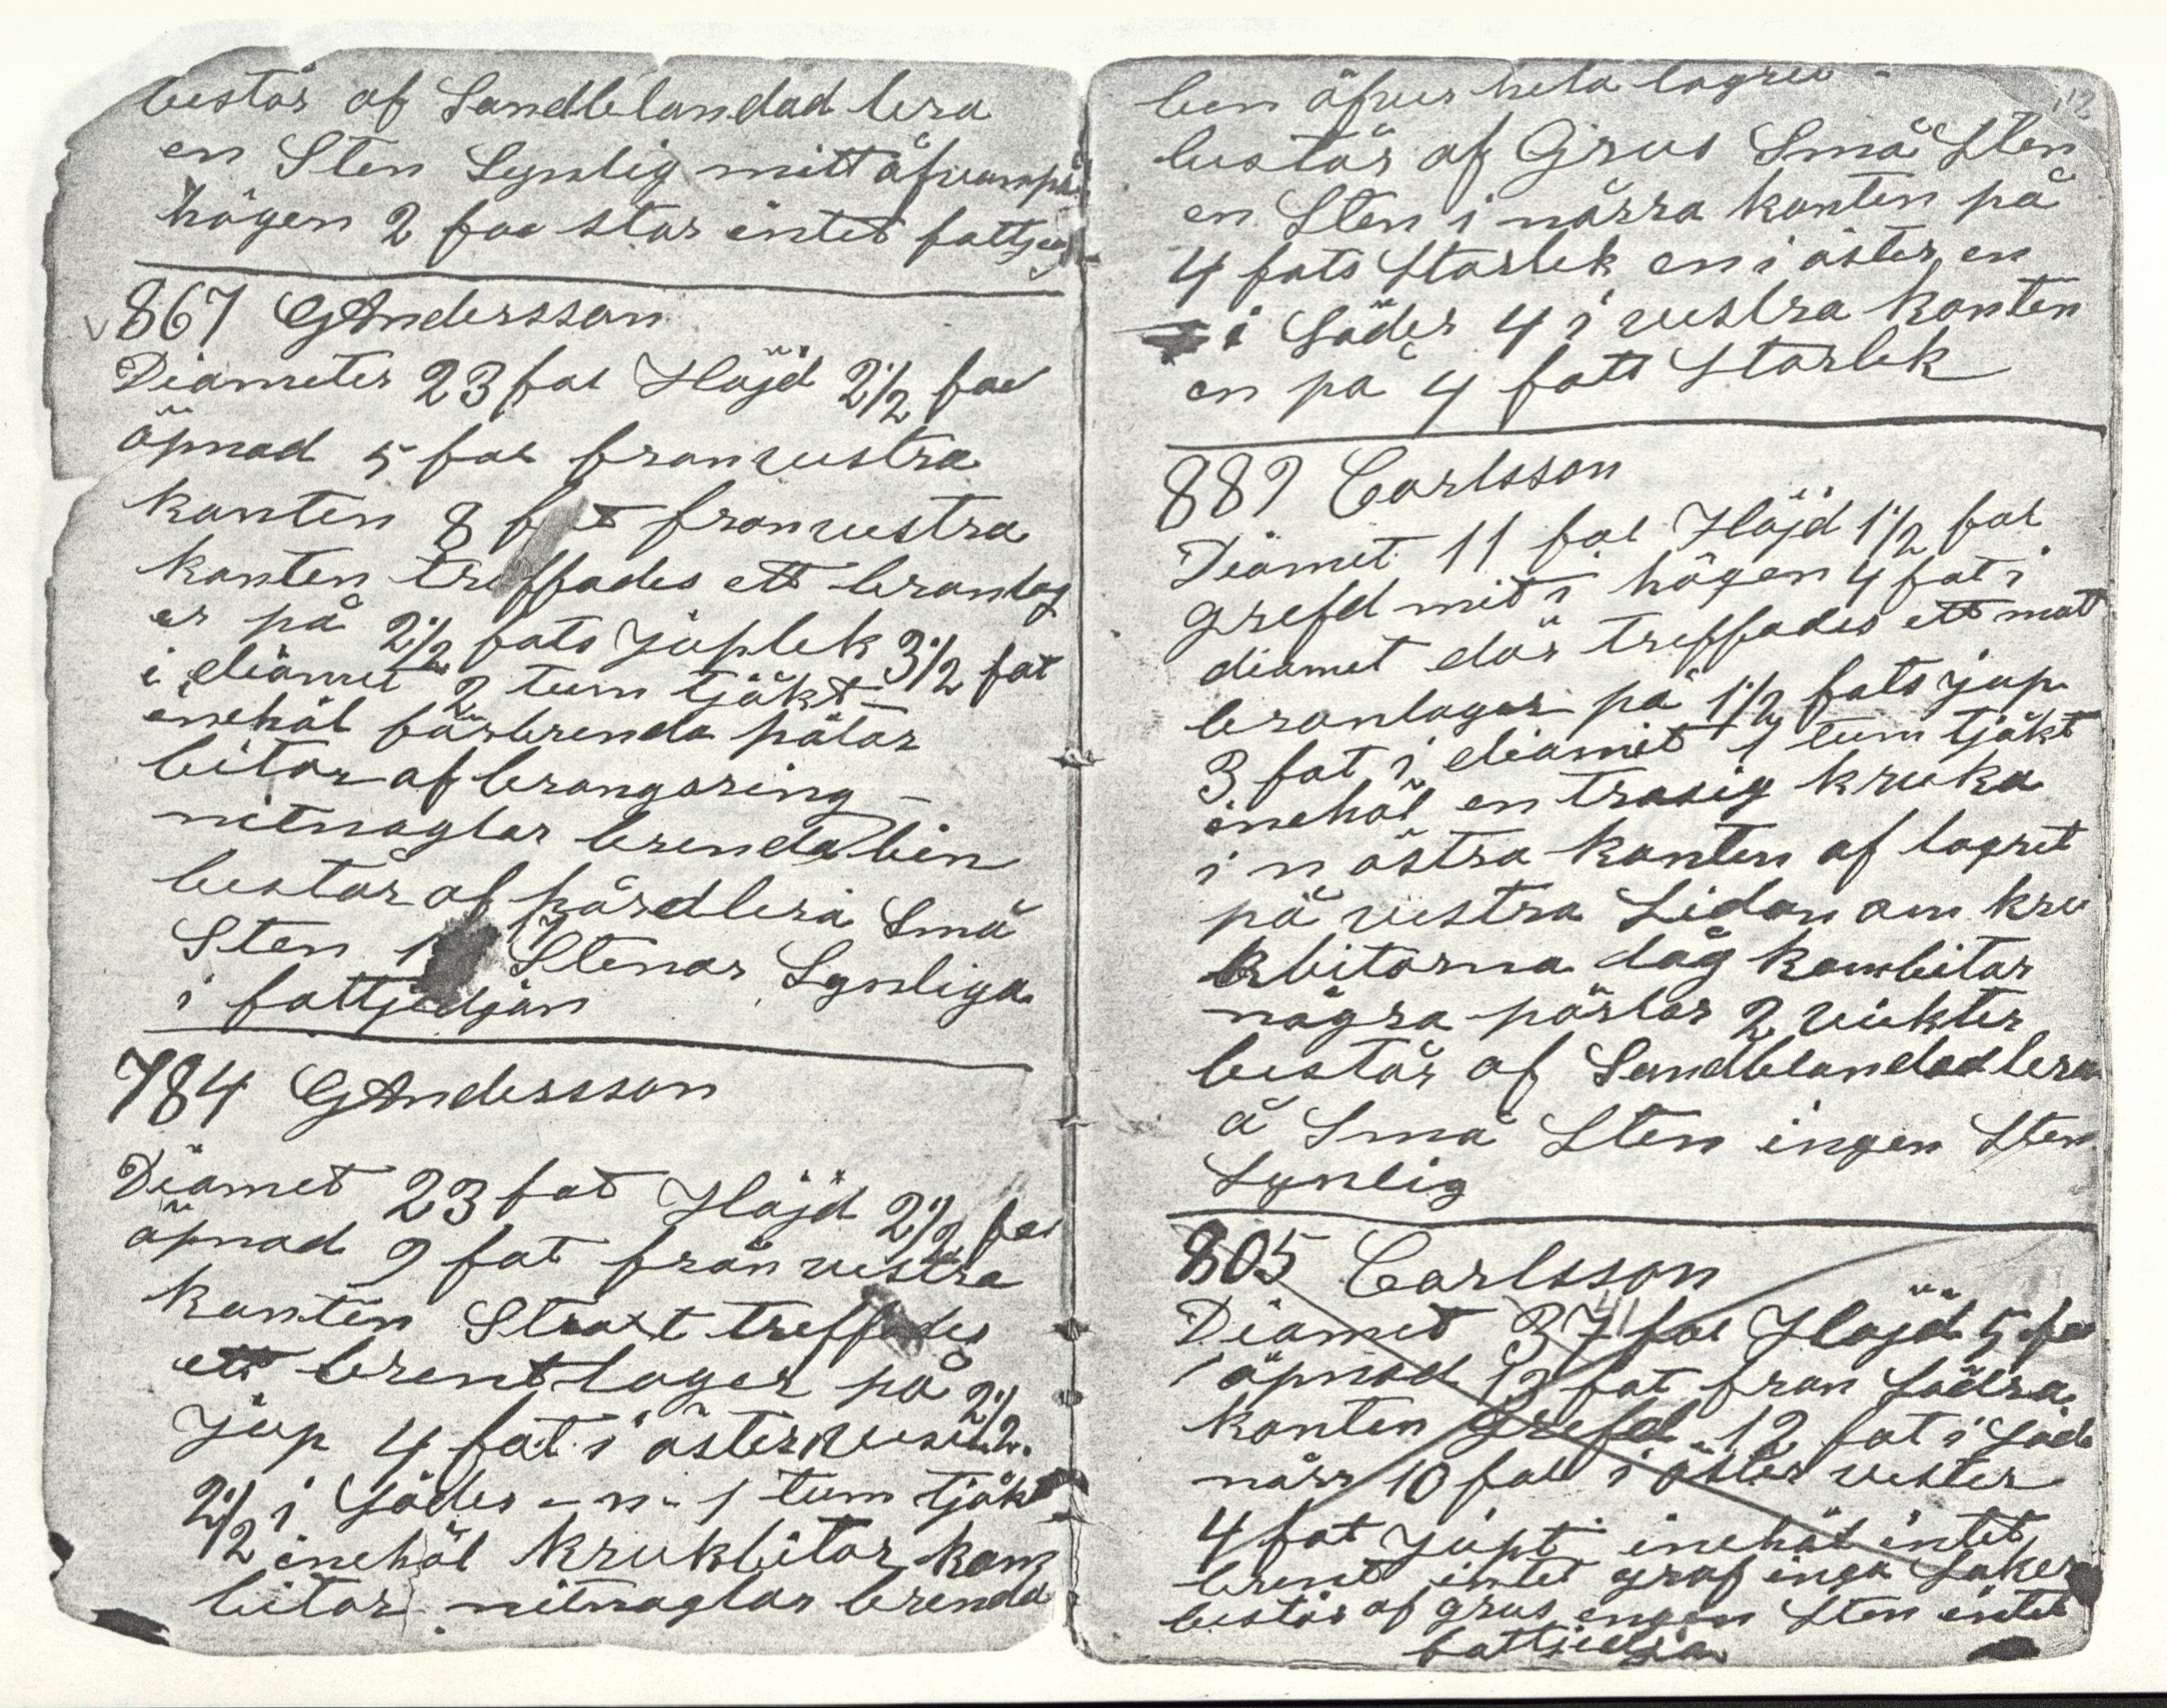 består af Sandblandad lera
en Sten Synlig mitt åfvanpå
högen 2 fot stor intet fottje
867 GAndersson
Diameter 23 fot Höjd 2 1/2 fot
öpnad 5 fot fron vestra
kanten 8 fot fron vestra
kanten treffades ett branlag
er på 2 1/2 fots juplek 3 1/2 fot
i diamet 2 tum tjökt –
inehöl förbrenda pälar
bitar af brangsring –
nitnaglar brenda bin
består af hård lera Små
Sten Stenar Synliga
i fottjedjan
784 GAndersson
Diamet 23 fot Höjd 2 1/2 fot
öpnad 9 fot från vestra
kanten Straxt treffades
ett brentlager på 2 1/2
jup 4 fot i öster
2 1/2 i Söder - n - 1 tum tjökt
inehöl krukbitar kam
bitar nitnaglar brenda
ben öfver hela lagret
12
består af Grus Små Sten
en Sten i norra kanten på
4 fots Storlek en i öster en
i Söder 4 i vestra kanten
en på 4 fott Storlek
889 Carlsson
Diamet 11 fot Höjd 1 1/2 fot
grefd mit i högen 4 fot i
diamet där treffades ett mat
branlager på 1 1/2 fots jup
3 fot i diamet 1 tum tjökt
inehöl en trasig kruka
i n östra kanten af lagret
på vestra Sidan om kru
kbitarna låg kambitar
några pärlar 2 vikter
består af Sandblandad lera
å Små Sten ingen Sten
Synlig
805 Carlsson
Diamet 37 fot Höjd 5 fot
öpnad 13 fot fron Södra
kanten Grefd 12 fot i Söd
norr 10 fot i öster vester
4 fot jupt inehöl intet
brent intet graf inga Saker
består af grus engen Sten intet
fottjedja